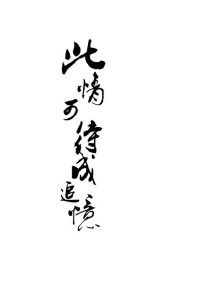 此情可待成追憶